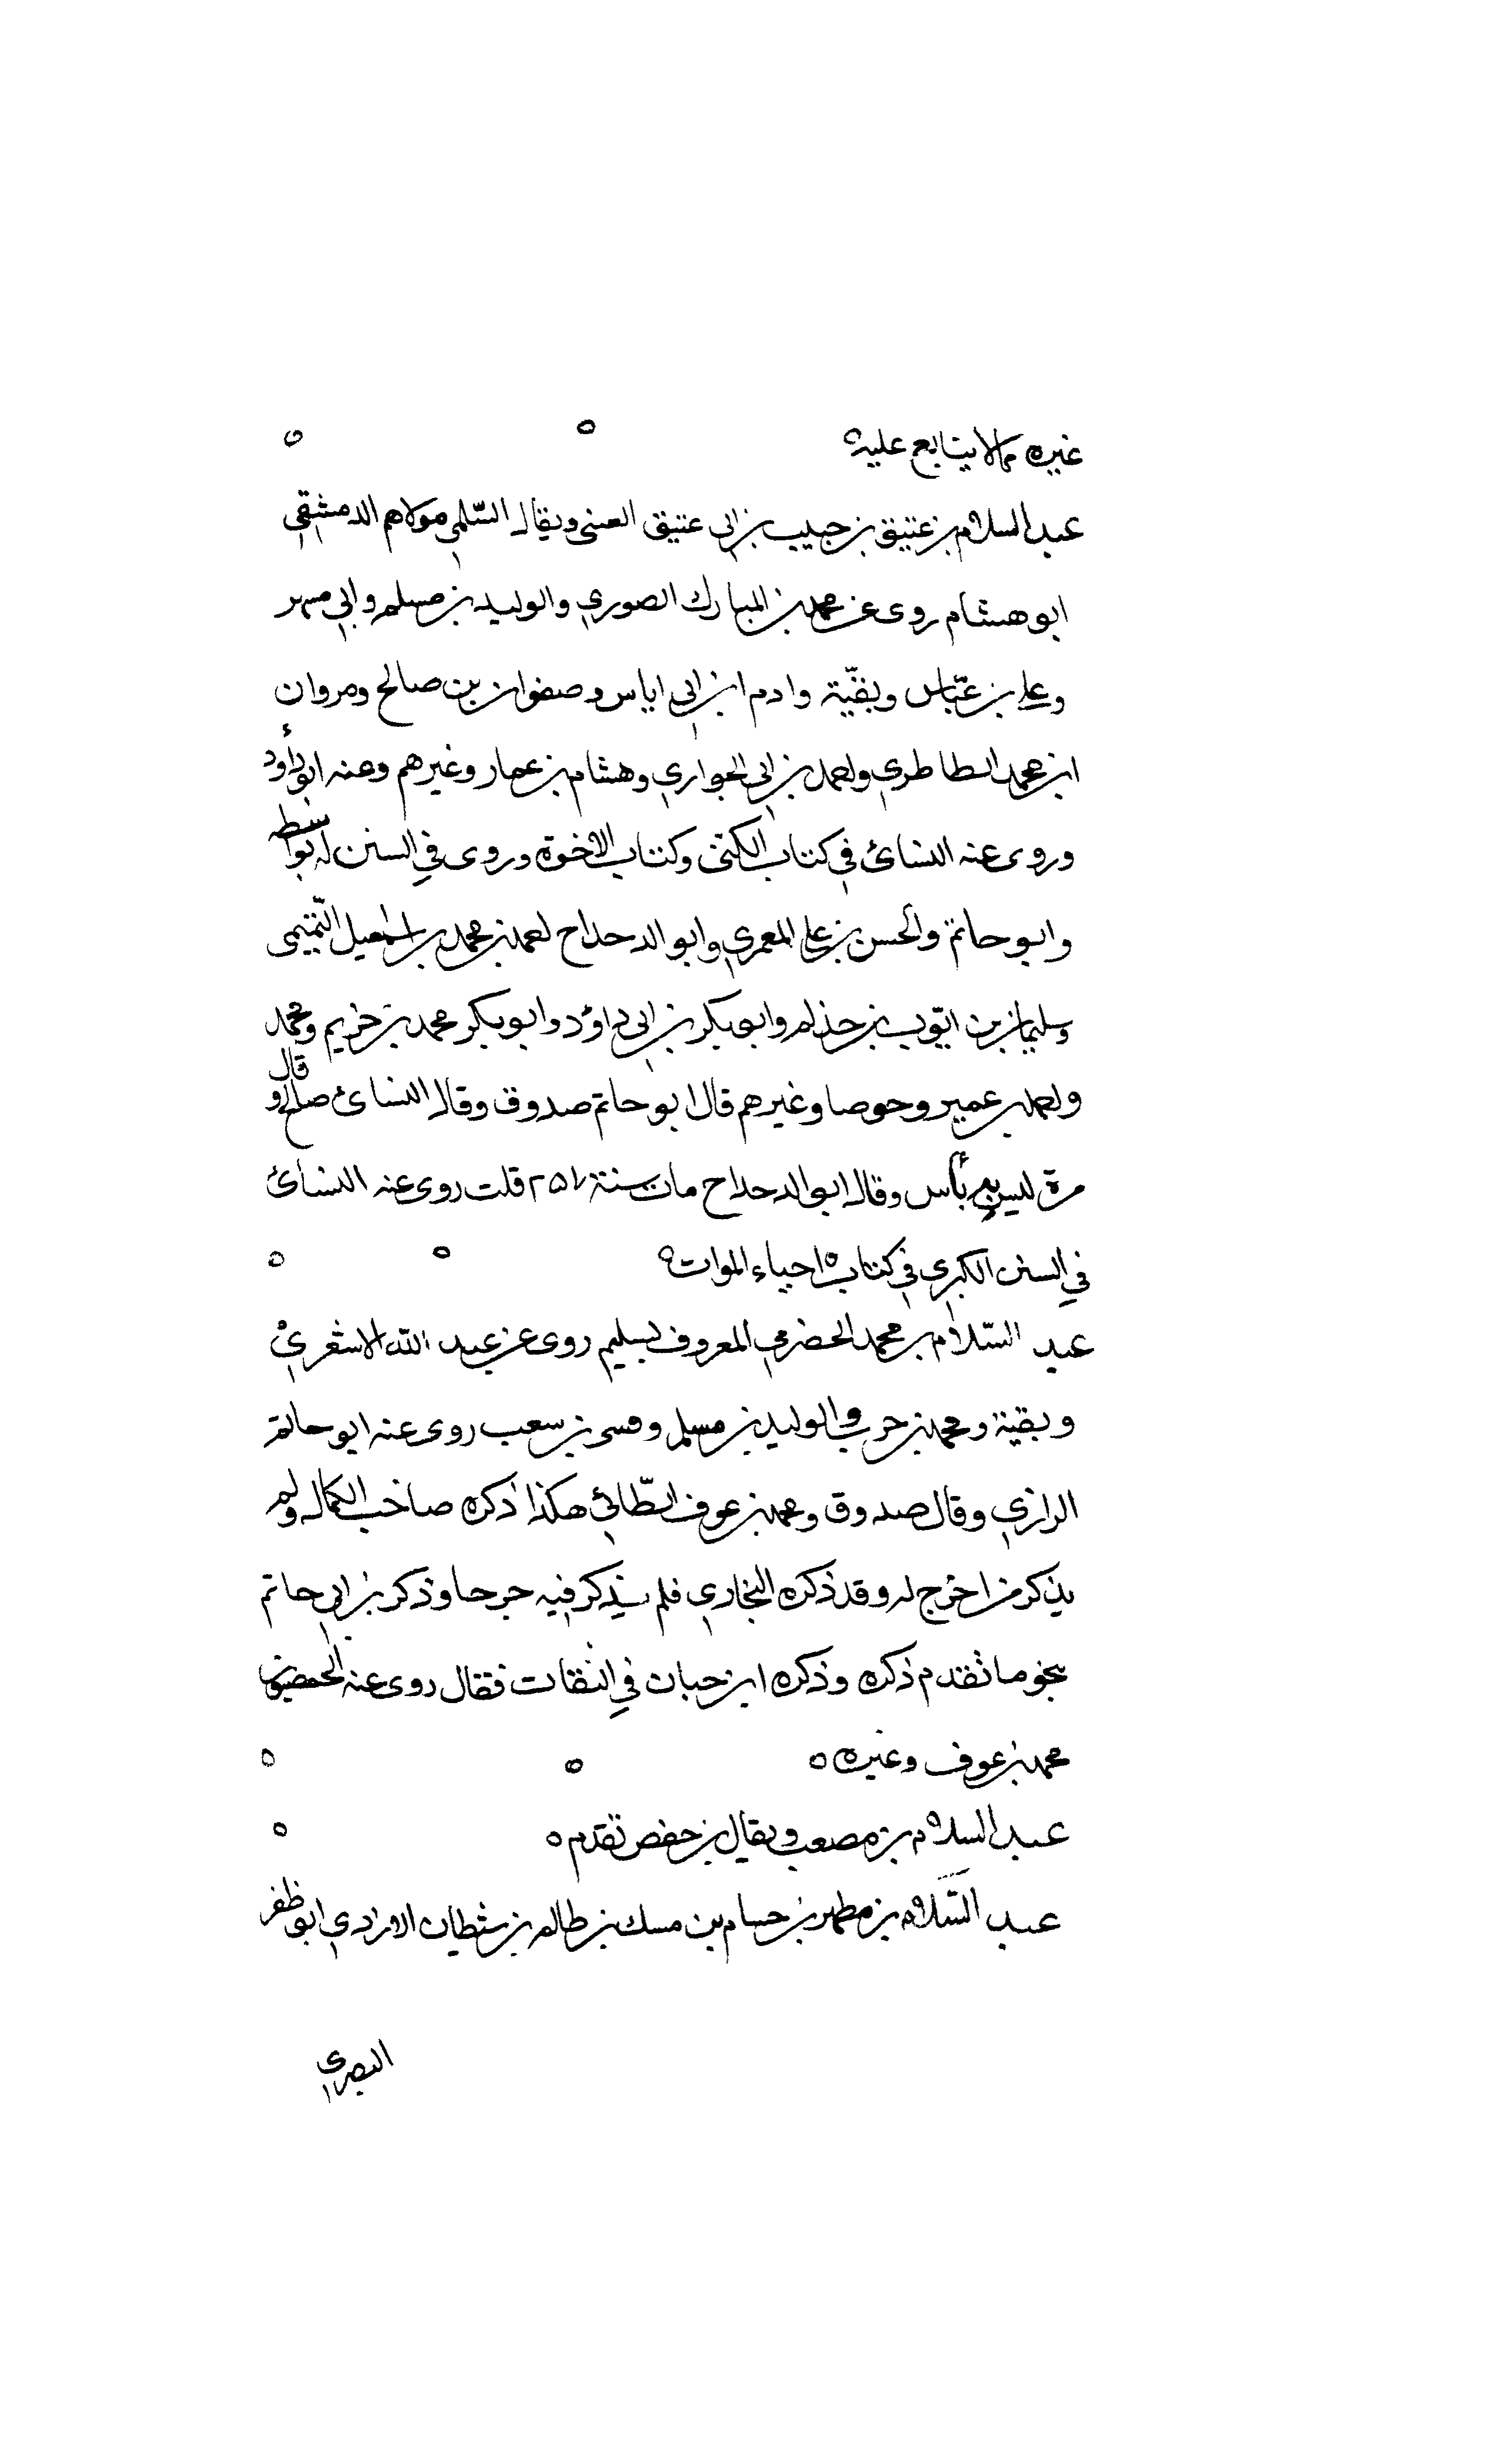 غيره مما لا يتابع عليه ه ه ه
عبد السلام بن عتيق بن حبيب بن ابي عتيق العنسي ويقال السّلمي مولاهم الدمشقي
ابو هشام روى عن محمد بن المبارك الصوري والوليد بن مسلم وابي مسهر
وعلي بن عيّاش وبقيّة وادم ابن ابي اياس وصفوان بن صالح ومروان
ابن محمد الطاطري واحمد بن ابي الحواري وهشام بن عمار وغيرهم وعنه ابو داود
وروى عنه النسائ في كتاب الكنى وكتاب الاخوة وروى في السنن له بواسطه
وابو حاتم والحسن بن علي المعمري وابو الدحداح احمد بن محمد بن اسمعيل التّميمى
وسليمان بن ايّوب بن حذلم وابو بكر بن ابي داوٗد وابو بكر محمد بن خريم ومحمد
واحمد بن عمير وحوصا وغيرهم قال ابو حاتم صدوق وقال النسائ صالح وقال
مرة ليس به بأس وقال ابو الدحداح مات سنة ٢٥٧ قلت روى عنه النسائ
في السنن الكبرى في كتاب احياء الموات ه ه ه
عبد السّلام بن محمد الحضرمي المعروف بسليم روى عن عبد الله الاشعري
وبقية ومحمد بن حرب والوليد بن مسلم و بن سعب روى عنه ابو حاتم
الرازي وقال صدوق ومحمد بن عوف الطّائي هكذا ذكره صاحب الكمال ولم
يذكر من اخرج له وقد ذكره البخاري فلم يذكر فيه جرحا وذكر بن ابي حاتم
نحو ما تقدم ذكره وذكره ابن حبان في الثقات فقال روى عنه
محمد بن عوف وغيره ه ه ه
عبد السلام بن مصعب ويقال بن حفص تقدم ه ه
عبد السّلام بن مطهر بن حسام بن مسك بن ظالم بن شيطان الازدي ابو ظفر
البصري